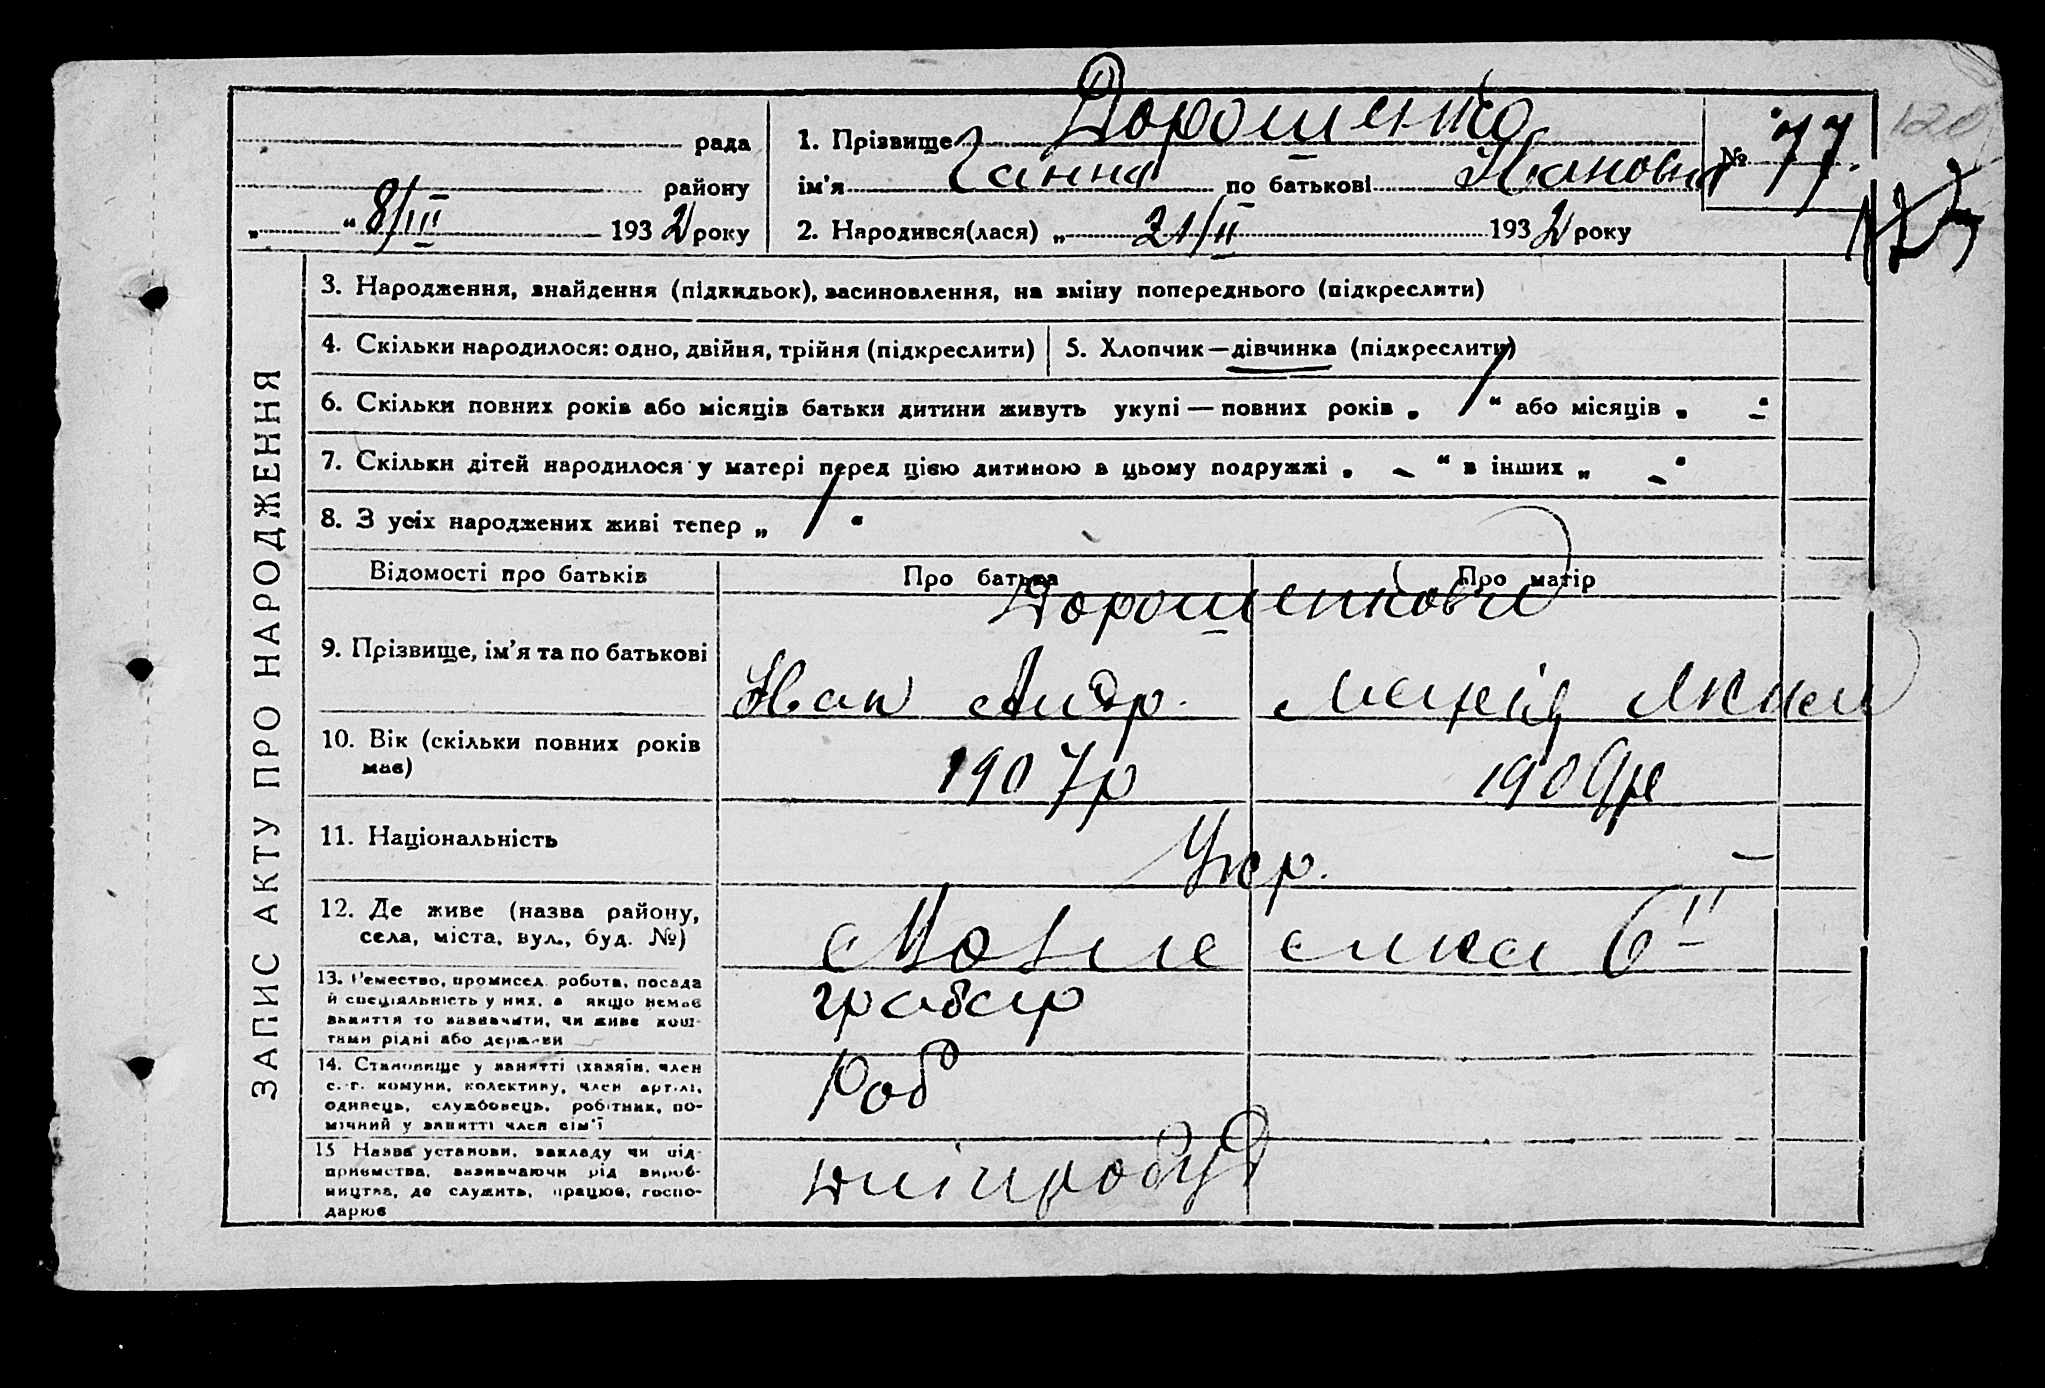 120
рада
1. Прізвище Дорошенко
№ 77.
району
ім'я Ганна по батькові Івановна
„ “ 8/III 1932 року
2. Народився(лася) „ 21/II 1932 року
ЗАПИС АКТУ ПРО НАРОДЖЕННЯ
3. Народження, знайдення (підкидьок), засиновлення, на зміну попереднього (підкреслити)
4. Скільки народилося: одно, двійня, трійня (підкреслити)
5. Хлопчик — дівчинка (підкреслити)
6. Скільки повних років або місяців батьки дитини живуть укупі — повних років „ / “ або місяців „ – “
7. Скільки дітей народилося у матері перед цією дитиною в цьому подружжі „ – “ в інших „ – “
8. З усіх народжених живі тепер „ / “
Відомості про батьків
Про батька
Про матір
Дорошенкови
9. Прізвище, ім'я та по батькові
Иван Андр.
10. Вік (скільки повних років
має)
1907р
1909р
11. Національність
Укр. –
12. Де живе (назва району,
села, міста, вул., буд. №)
13. Ремество, промисел, робота, посада
й спеціяльність у них, а якщо немає
заняття то зазначити, чи живе кош-
тами рідні або держави
грабар
14. Становище у занятті (хазяїн, член
с.-г. комуни, колективу, член артілі,
одинець, службовець, робітник, по-
мічний у занятті член сім'ї
Роб
15 Назва установи, закладу чи під-
приємства, зазначаючи рід вироб-
ництва, де служить, працює, госпо-
дарює
Дніпробуд